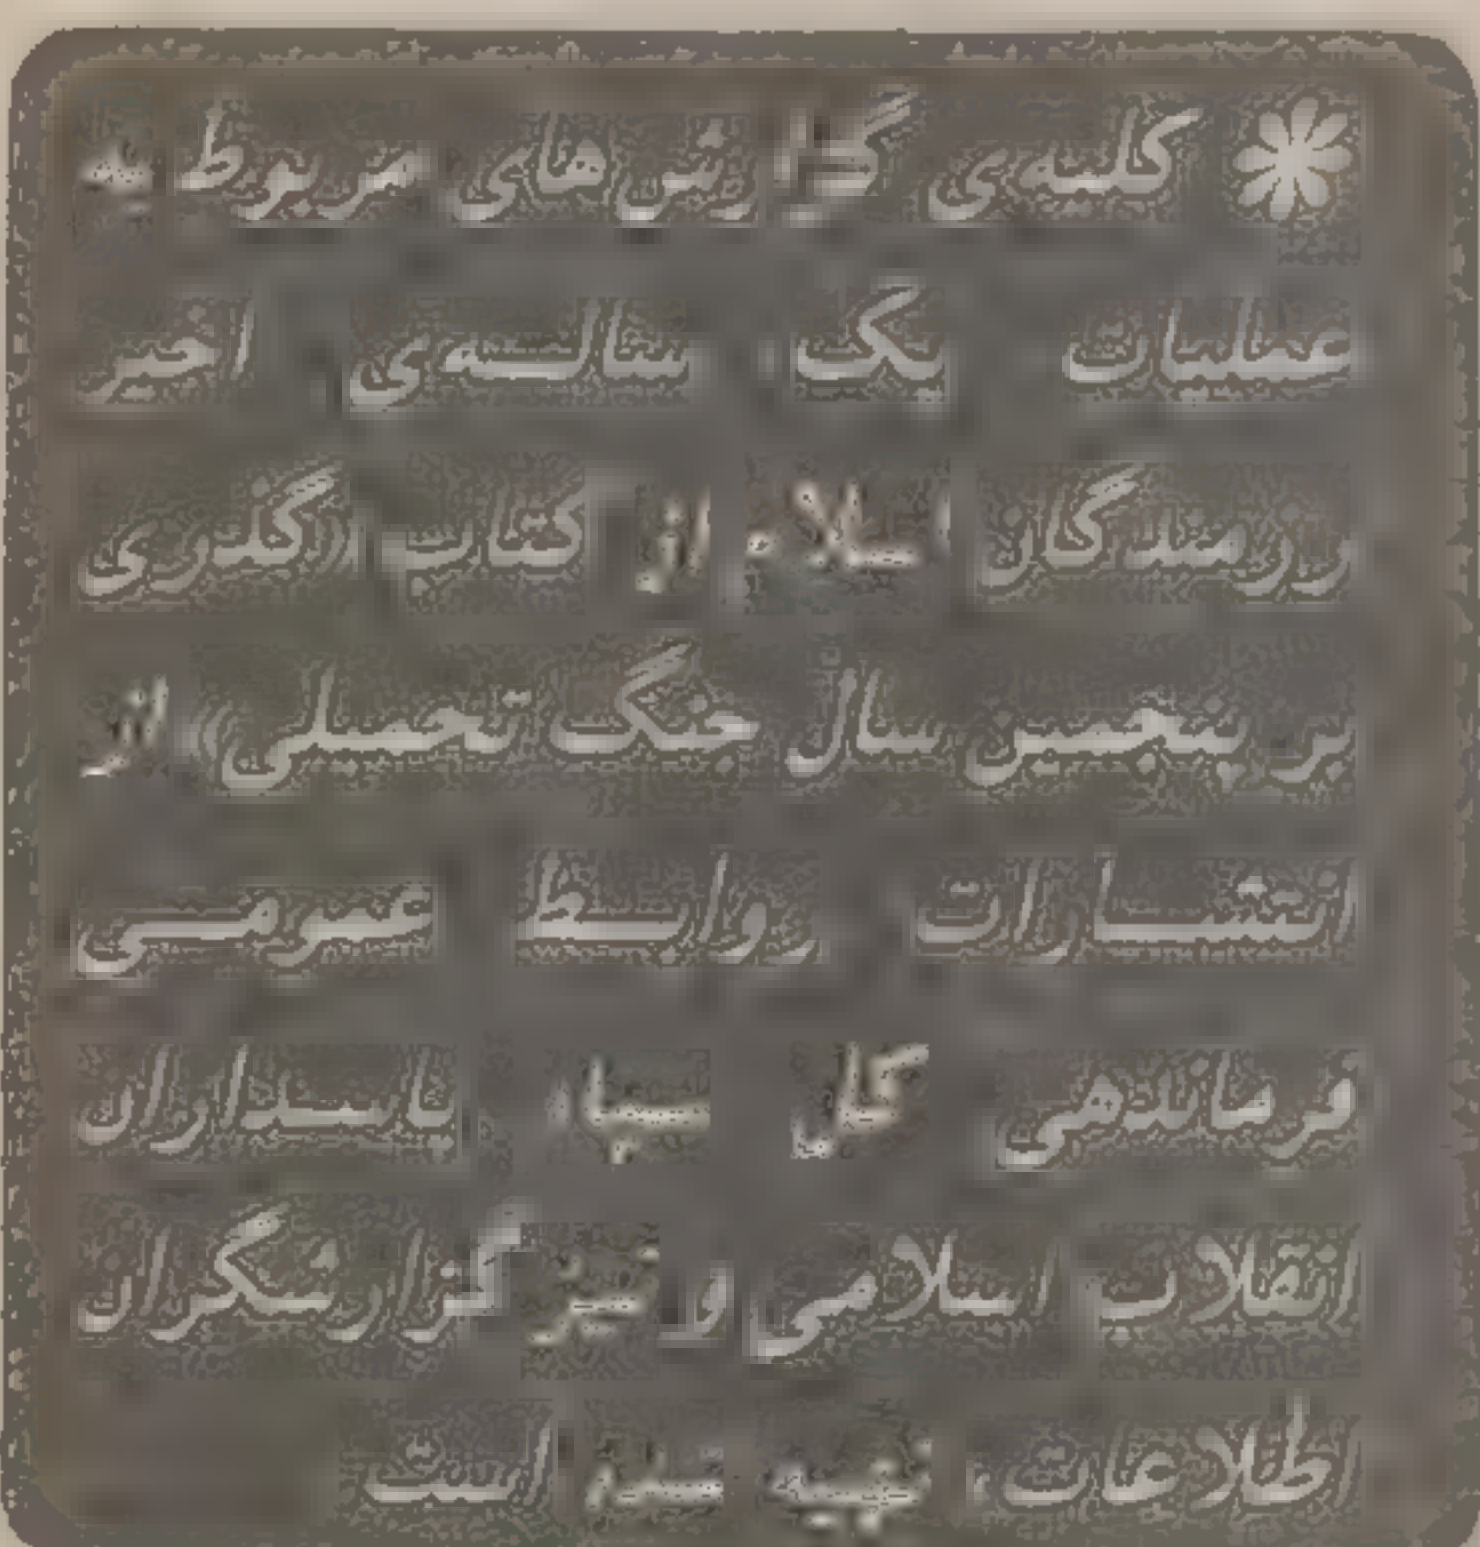 کلیه‌ی گزارش‌های مربوط به
عملیات یک ساله‌ی اخیر
رزمندگان اسلام از کتاب (گذری
بر پنجمین سال جنگ تحمیلی) از
انتشارات روابط عمومی
فرماندهی کل سپاه پاسداران
انقلاب اسلامی و نیز گزارشگران
اطلاعات تهیه شده است